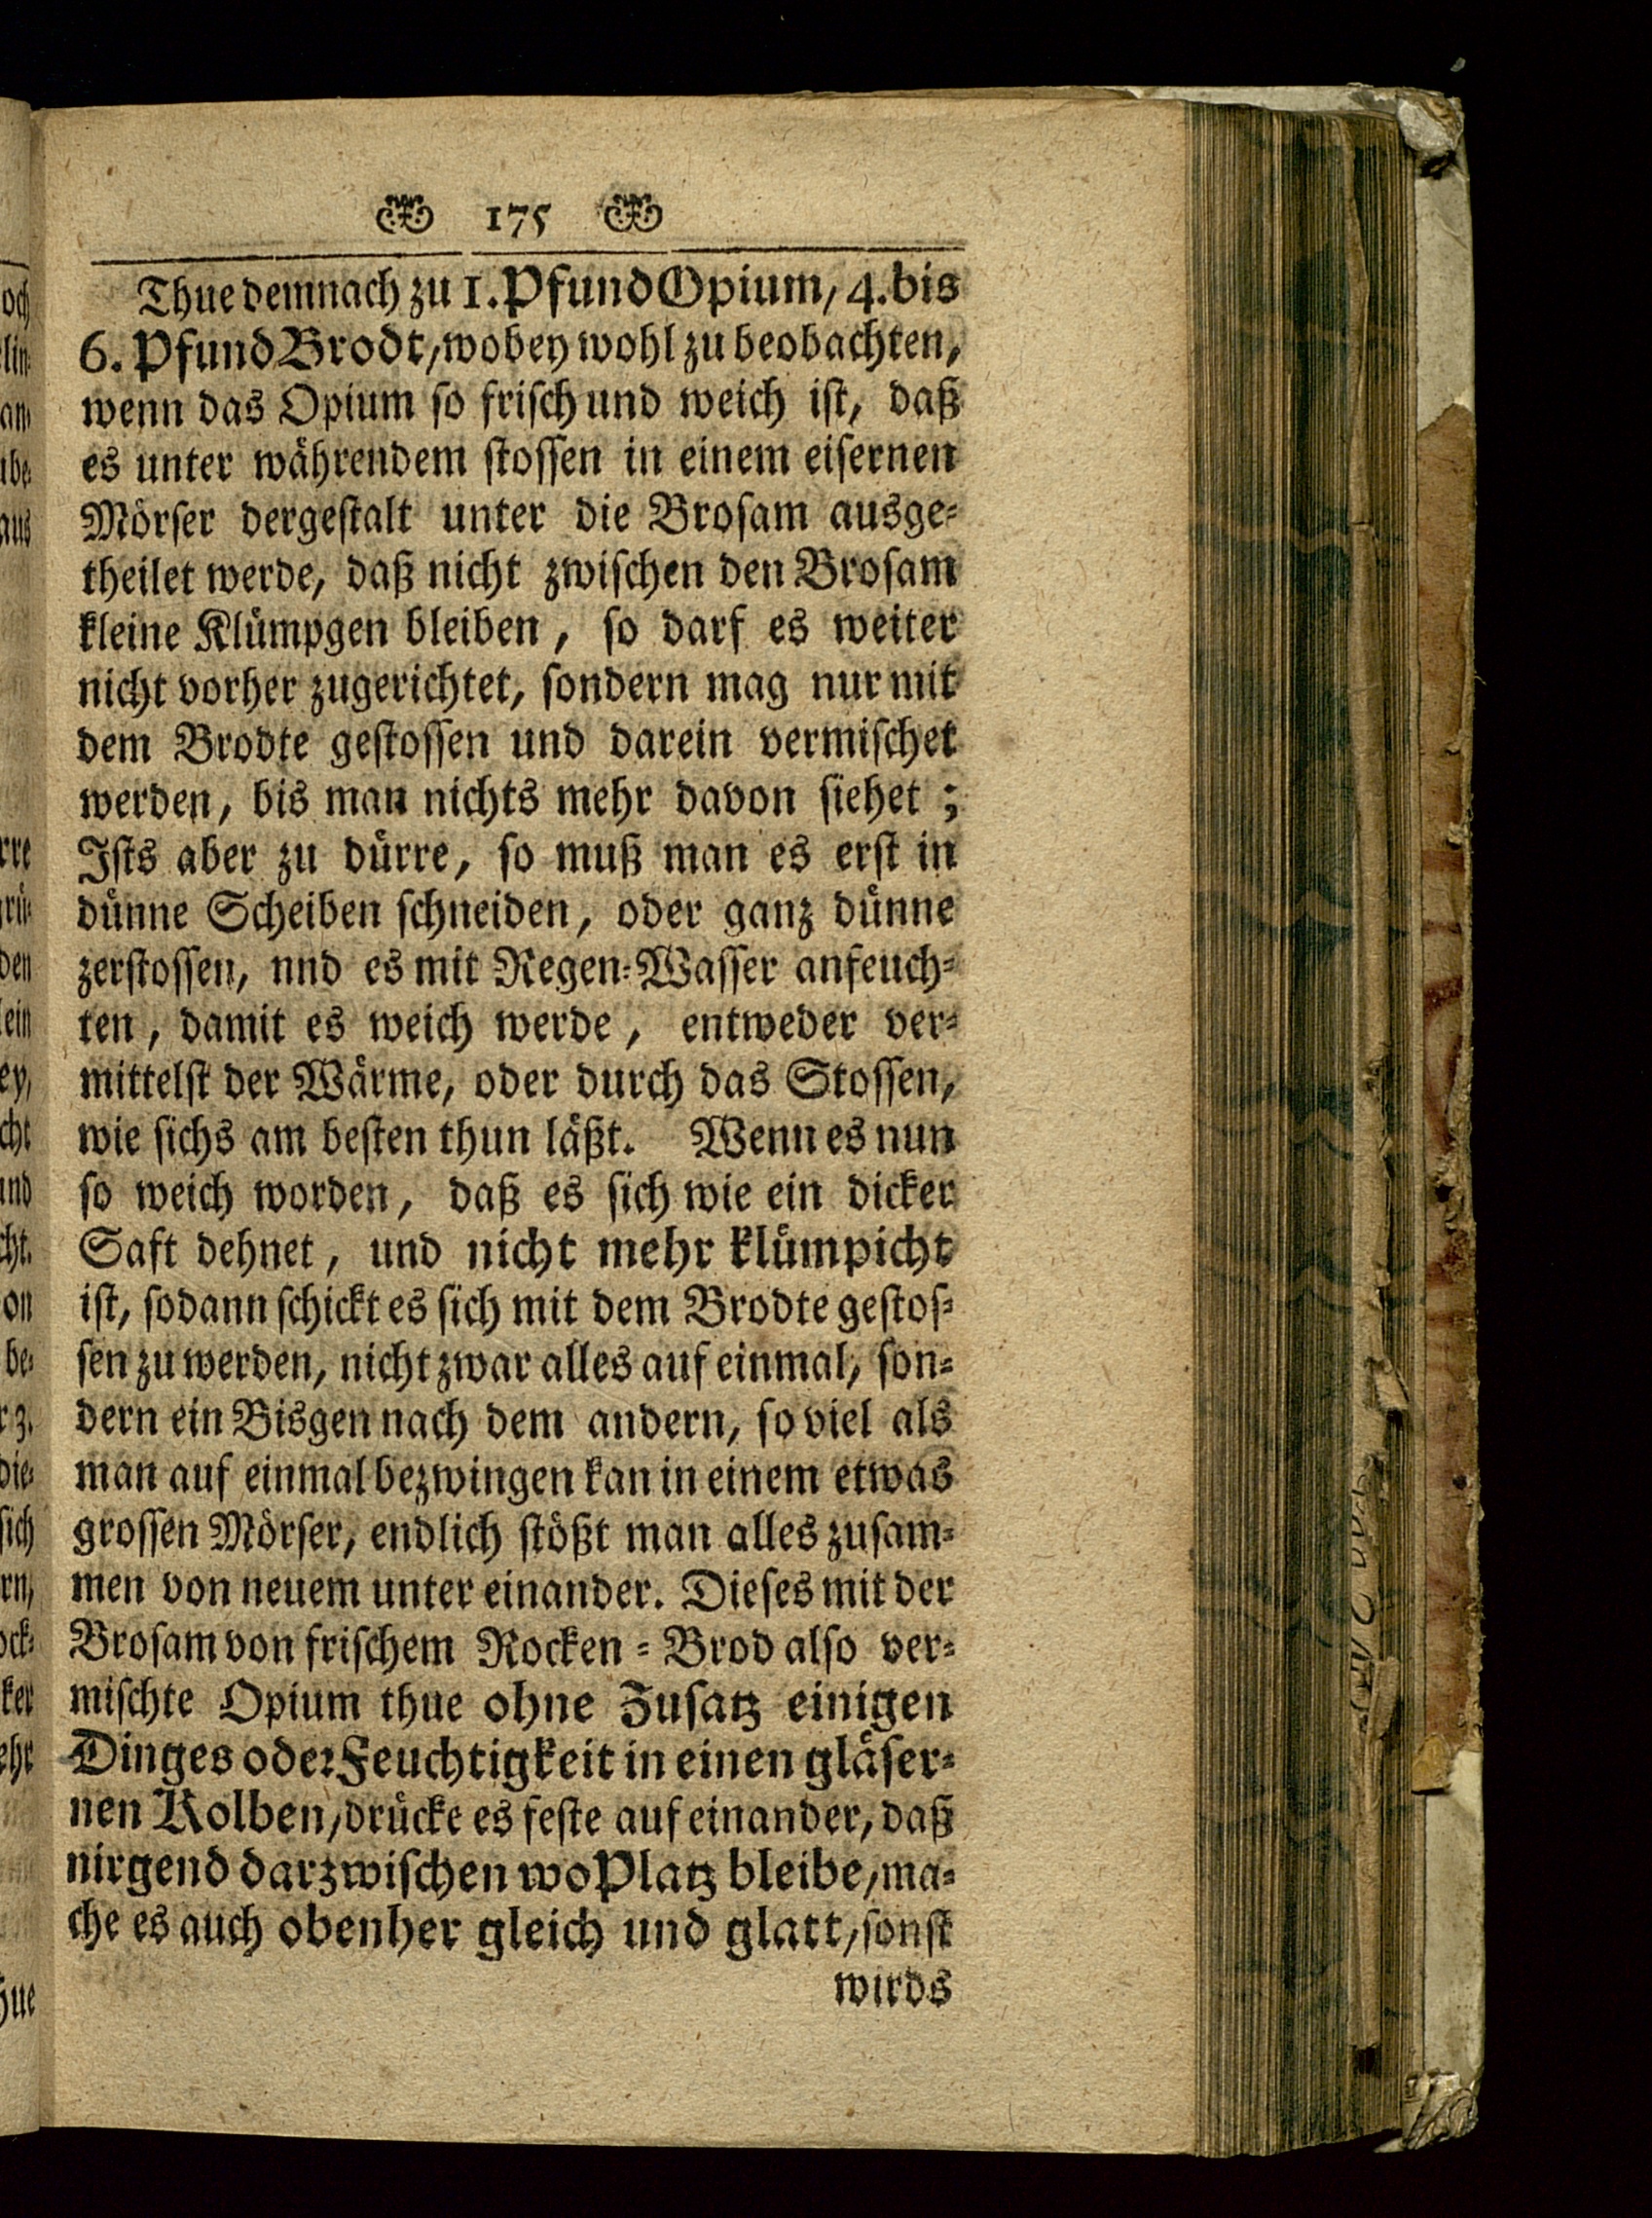 175
Thue demnach zu 1. Pfund Opium, 4. bis
6. Pfund Brodt, wobey wohl zu beobachten,
wenn das Opium so frisch und weich ist, daß
es unter währendem stossen in einem eisernen
Mörser dergestalt unter die Brosam ausge-
theilet werde, daß nicht zwischen den Brosam
kleine Klümpgen bleiben, so darf es weiter
nicht vorher zugerichtet, sondern mag nur mit
dem Brodte gestossen und darein vermischet
werden, bis man nichts mehr davon siehet;
Ists aber zu dürre, so muß man es erst in
dünne Scheiben schneiden, oder ganz dünne
zerstossen, nnd es mit Regen-Wasser anfeuch-
ten, damit es weich werde, entweder ver-
mittelst der Wärme, oder durch das Stossen,
wie sichs am besten thun läßt. Wenn es nun
so weich worden, daß es sich wie ein dicker
Saft dehnet, und nicht mehr klümpicht
ist, sodann schickt es sich mit dem Brodte gestos-
sen zu werden, nicht zwar alles auf einmal, son-
dern ein Bisgen nach dem andern, so viel als
man auf einmal bezwingen kan in einem etwas
grossen Mörser, endlich stößt man alles zusam-
men von neuem unter einander. Dieses mit der
Brosam von frischem Rocken-Brod also ver-
mischte Opium thue ohne Zusatz einigen
Dinges oder Feuchtigkeit in einen gläser-
nen Kolben, drücke es feste auf einander, daß
nirgend darzwischen wo Platz bleibe, ma-
che es auch obenher gleich und glatt, sonst
wirds